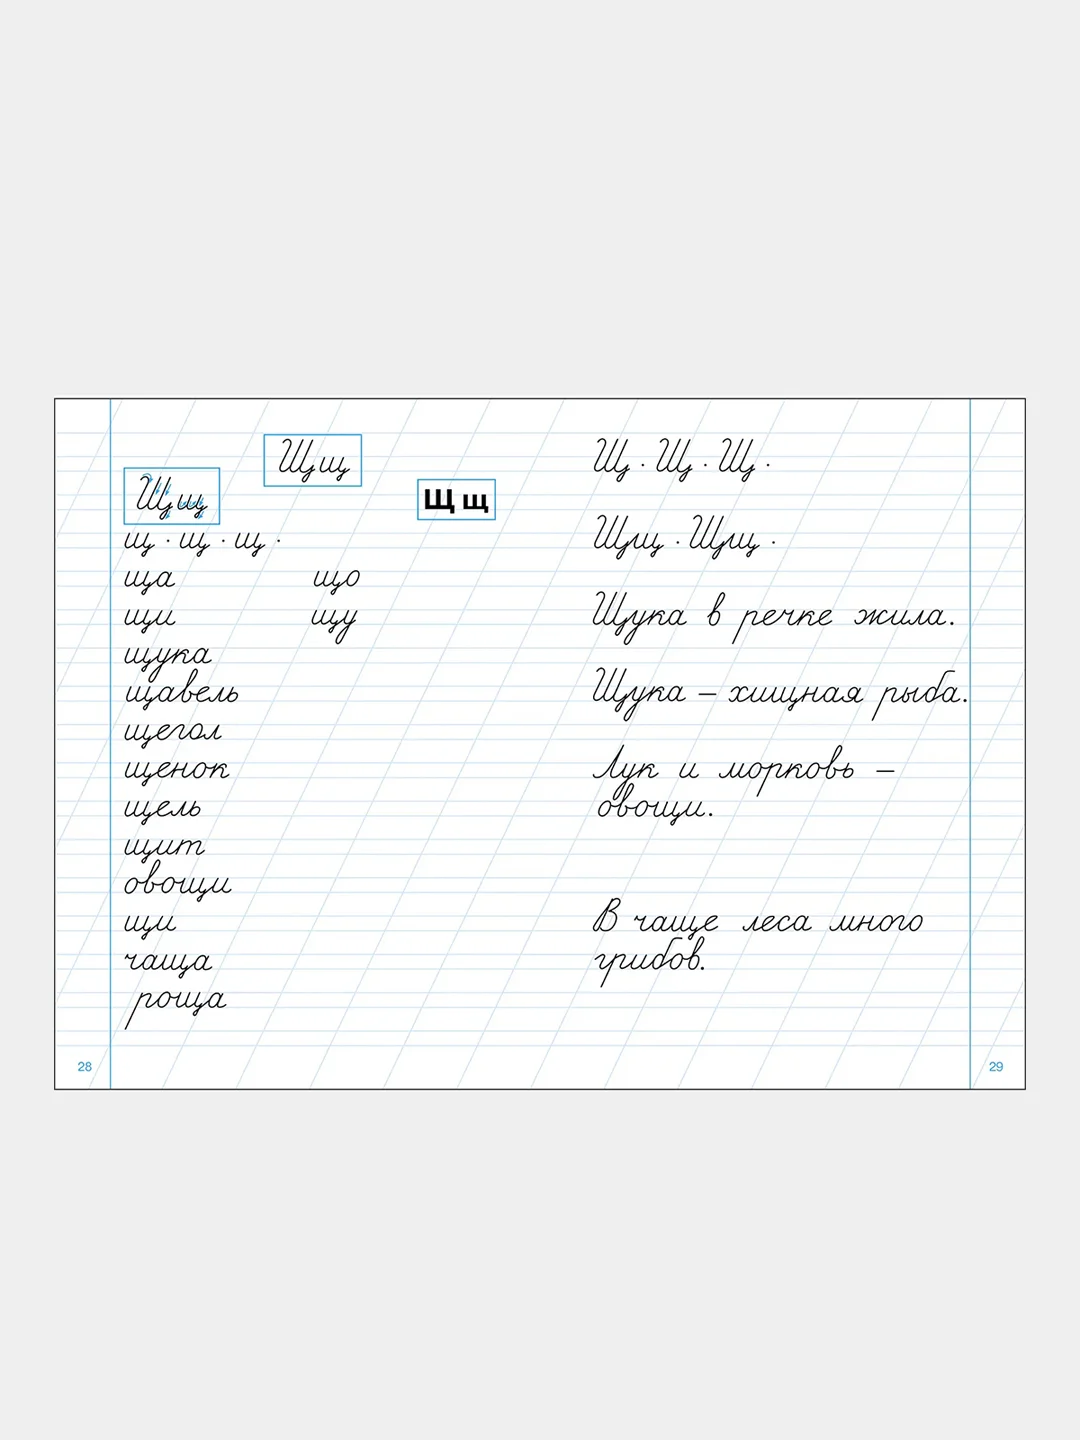 Щщ
Щщ
Щ щ
щ · щ · щ ·
ща що
щи щу
щука
щавель
щегол
щенок
щель
щит
овощи
щи
чаща
роща
28
Щ · Щ · Щ ·
Щщ · Щщ ·
Щука в речке жила.
Щука – хищная рыба.
Лук и морковь –
овощи.
В чаще леса много
грибов.
29